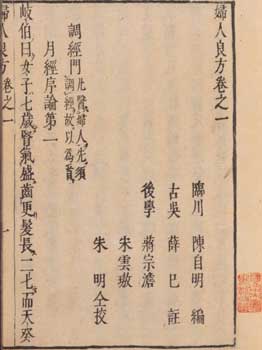 婦人良方卷之一
臨川 陳自明 編
古吳 薛己 註
後學 蔣宗澹
朱雲 校
朱明仝挍
調經門 凡醫婦人先須調經故以為首
月經序論第一
岐伯曰女子七歲腎氣盛齒更髮長二七而天癸
婦人良方卷之一 一